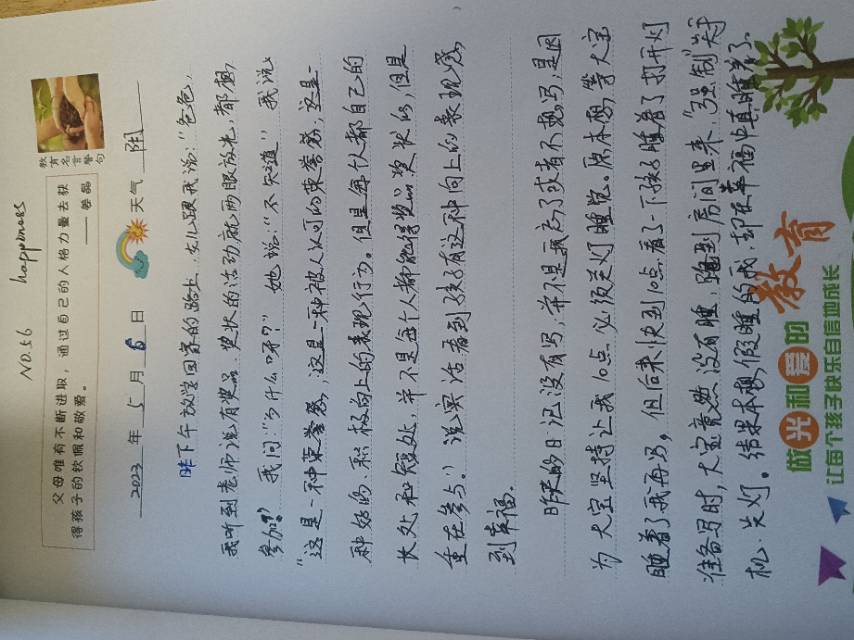 NO.56 happiness
父母唯有不断进取，通过自己的人格力量去获
得孩子的钦佩和敬爱。
——姜晶
教育名言警句
2023年5月6日 天气 阴
昨下午放学回家的路上，女儿跟我说：“爸爸，
我听到老师说有奖品、奖状的活动就两眼放光，都想
参加？”我问：“为什么呀？”她说：“不知道”我说
“这是一种荣誉感，这是一种被人认可的荣誉感，这是一
种好的、积极向上的表现行为。但是每个人都自己的
长处和短处，并不是每个人都能得奖品奖状的，但是
重在参与。”说实话看到孩子有这种向上的表现，感
到幸福。
昨天的日记没有写，并不是我忘了或者不想写，是因
为大宝坚持让我10点必须关灯睡觉。原本想等大宝
睡着了我再写，但后来快到10点看了一下孩子睡着了打开灯
准备写时，大宝竟然没有睡，跑到房间里来“强制”关手
机、关灯。结果本想假睡的我，却在幸福中真睡着了。
做光和爱的教育
让每个孩子快乐自信地成长